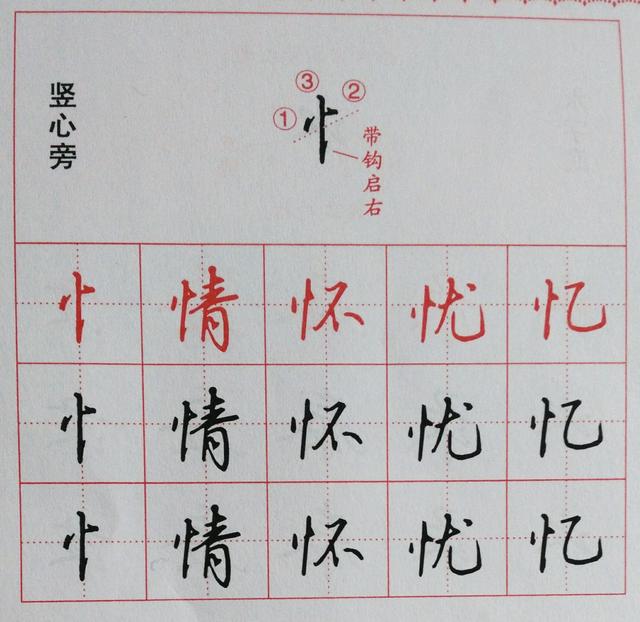 竖心旁
① ③ ②
忄
带钩启右
忄 情 怀 忧 忆
忄 情 怀 忧 忆
忄 情 怀 忧 忆